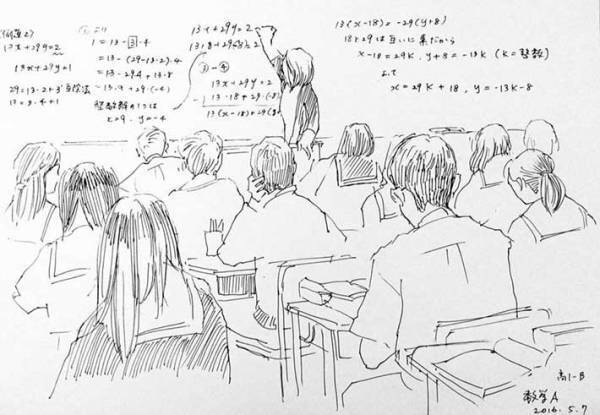 (例題2)
13x+29y=2
13x+29y=1
29=13・2+3 互除法
13=3・4+1
①より
1=13-3・4
=13-(29-13・2)・4
=13-29・4+13・8
=13・9+29(-4)
整数解の1つは
x=9, y=-4
13x+29y=2
③-④
13x+29y=2
13・18+29・(-8)
13(x-18)+29(y
13(x-18)=-29(y+8)
13と29は互いに素だから
x-18=29k, y+8=-13k (k=整数)
よって
x=29k+18, y=-13k-8
高1-B
数学A
2016.5.7